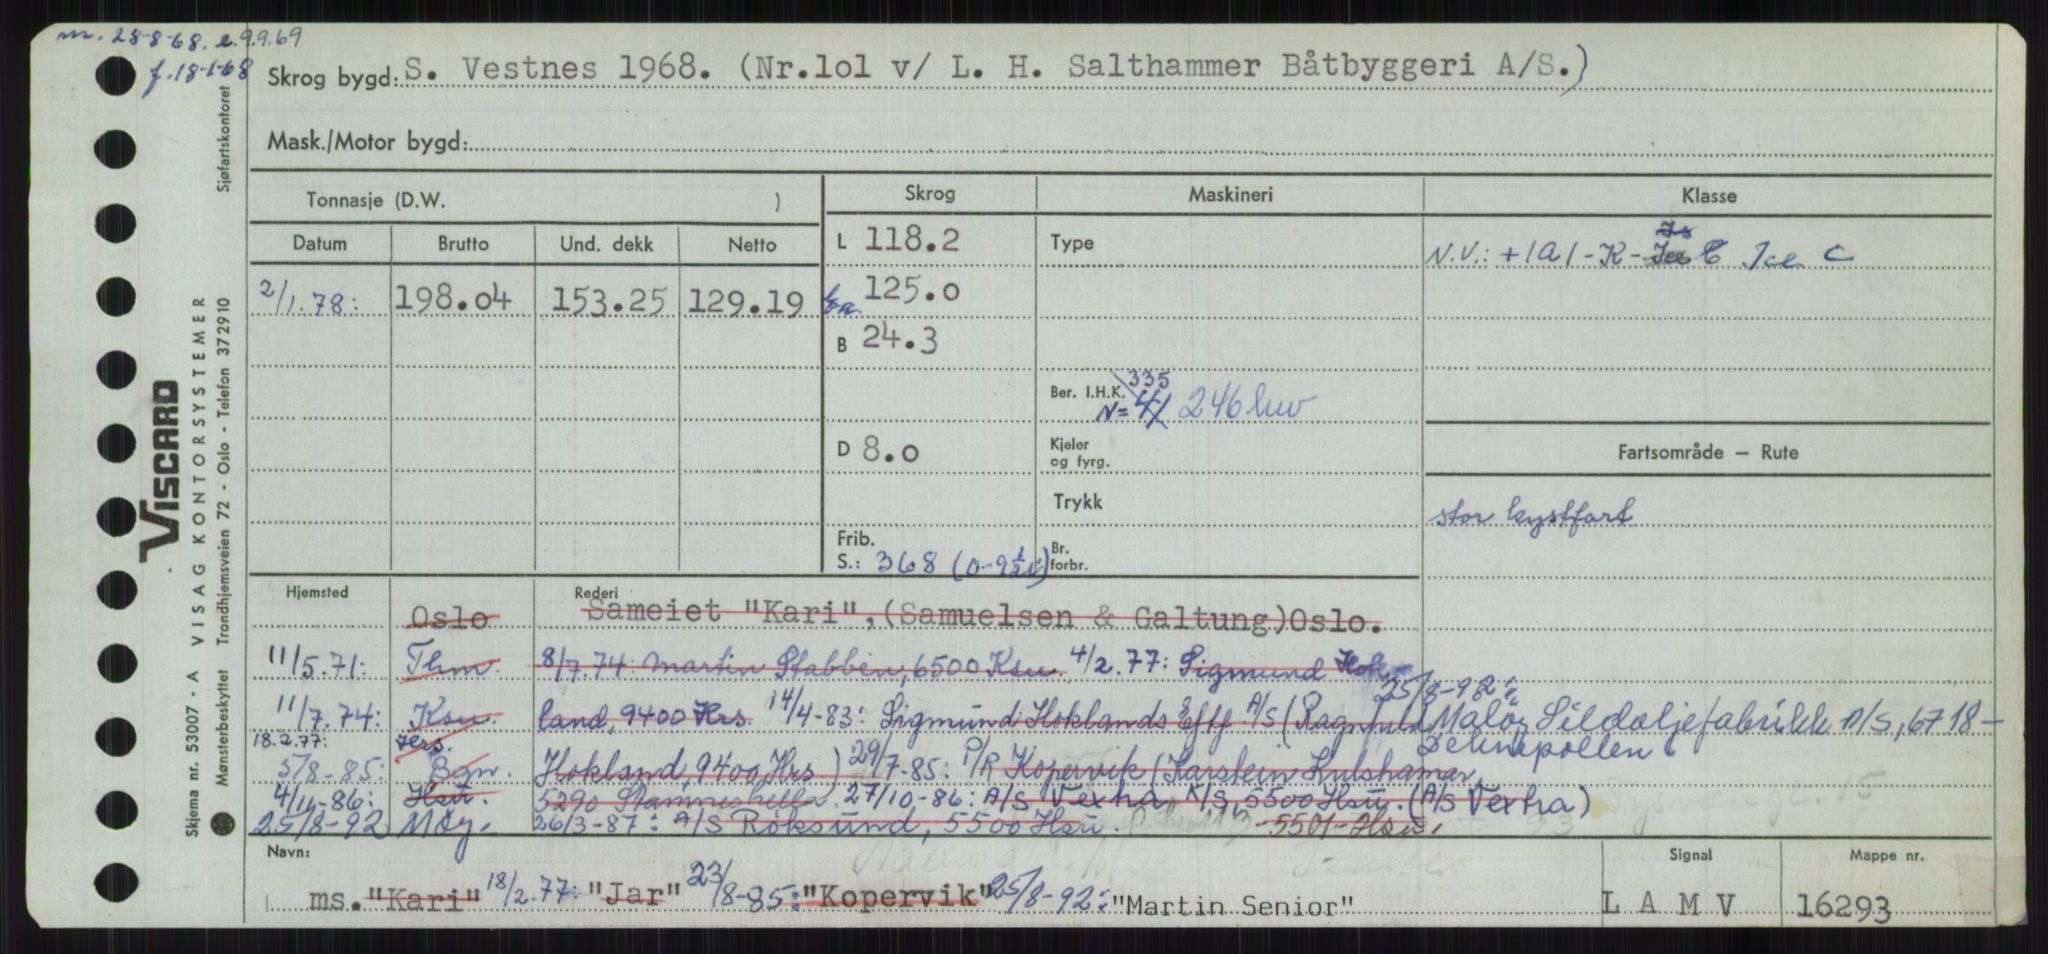 m. 28-8-68. e.9.9.69
f. 18-1-68
Skrog bygd: S. Vestnes 1968. (Nr.101 v/ L. H. Salthammer Båtbyggeri A/S.)
Mask./Motor bygd:
Tonnasje (D.W. )
Skrog
Maskineri
Klasse
Datum
Brutto
Und. dekk
Netto
L 118.2
Type
N.V.: +1A1-K- Ice C
2/1.78: 198.04 153.25 129.19
125.0
B 24.3
Ber. I.H.K. 335
N= 41 246 kw
D 8.0
Kjeler og fyrg.
Fartsområde – Rute
Trykk
stor kystfart
Frib. S.: 368 (0-9½")
Br. forbr.
Hjemsted
Rederi
Oslo Sameiet "Kari", (Samuelsen & Galtung) Oslo.
11/5.71: Thm. 8/7.74: Martin Stabben, 6500 Ksu. 4/2.77: Sigmund Hok-
11/7.74: Ksu. land, 9400 Hrs. 14/4-83: Sigmund Hoklands Eftf. A/S (Ragnvald
25/8-92: Måløy Sildoljefabrikk A/S, 6718-
Deknepollen
18.2.77: Hrs.
5/8-85: Bgn. Hokland, 9400 Hrs) 29/7-85: P/R Kopervik (Karstein Kulshamar,
4/11-86: Hsu. 5290 27/10-86: A/S Vextra K/S, 5500 Hsu. (A/S Vextra)
25/8-92 Møy. 26/3-87: A/S Røksund, 5500 Hsu. 5501-Hsu.
Navn:
Signal
Mappe nr.
ms. "Kari" 18/2.77: "Jar" 23/8-85: "Kopervik" 25/8-92: "Martin Senior"
L A M V
16293
Skjema nr. 53007 - A VISAG KONTORSYSTEMER
Mønsterbeskyttet Trondhjemsveien 72 - Oslo - Telefon 372910 Sjøfartskontoret
VISCARD